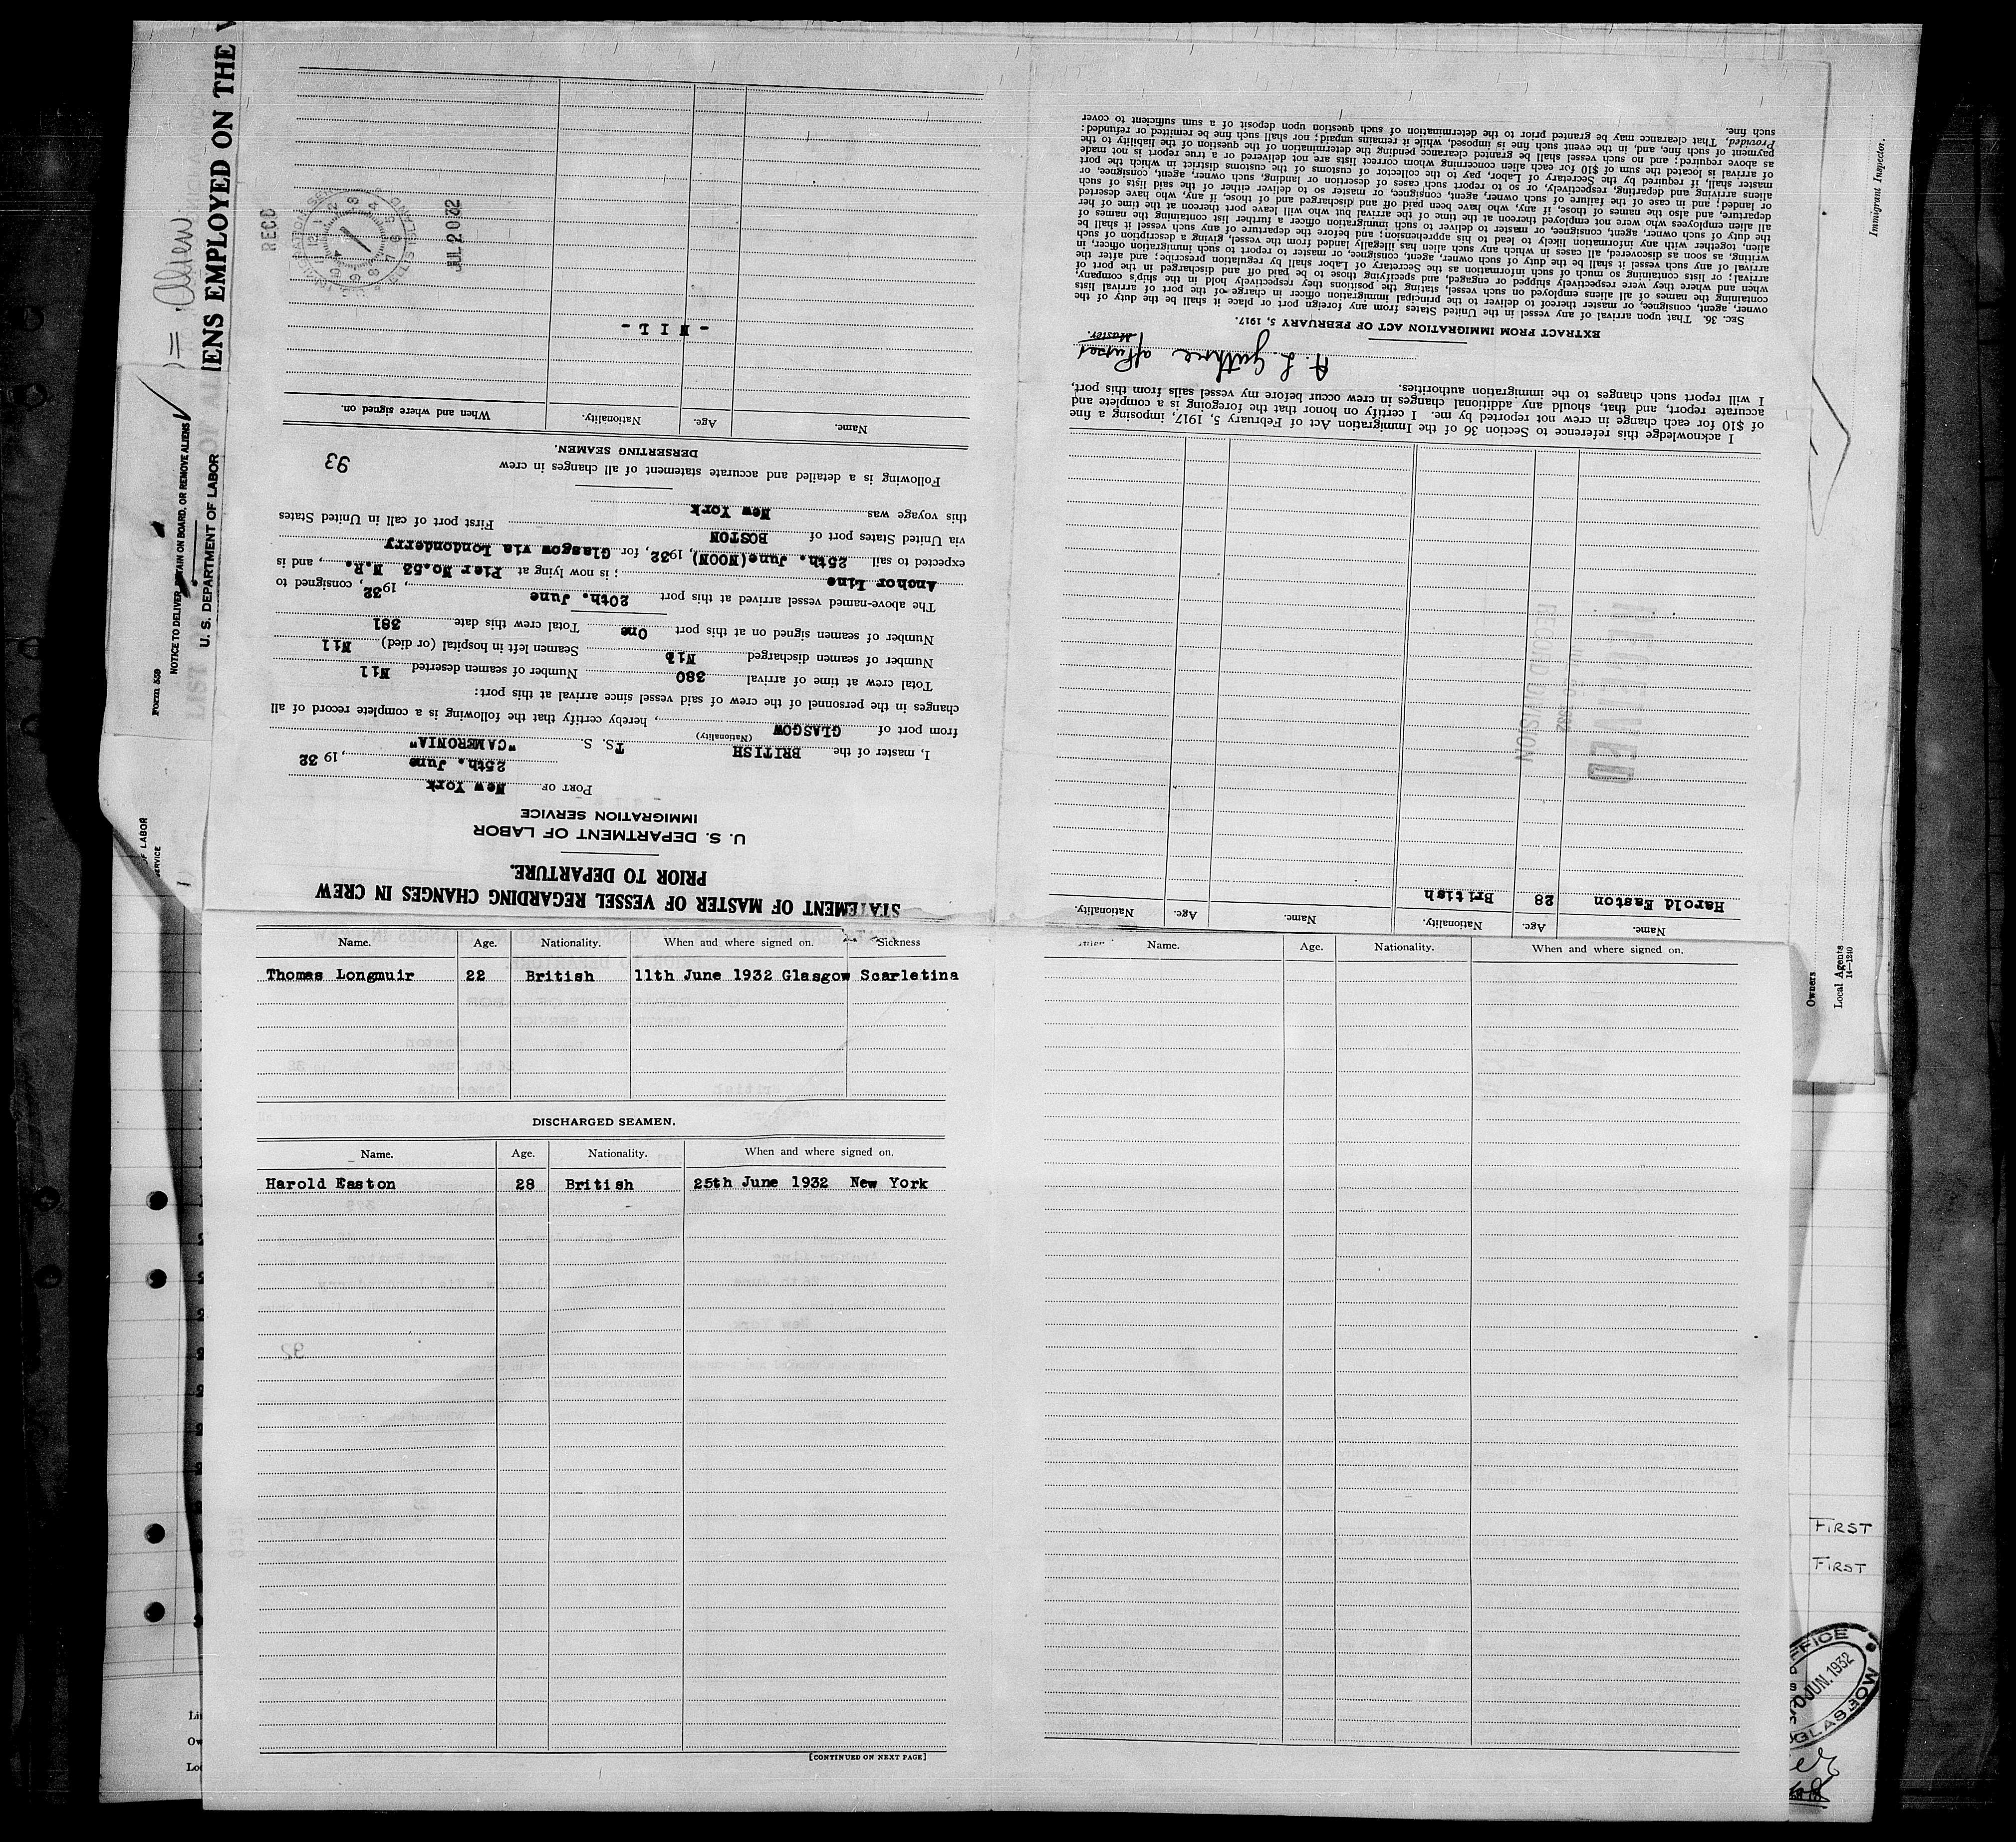 STATEMENT OF MASTER OF VESSEL REGARDING CHANGES IN CREW
PRIOR TO DEPARTURE.
U. S. DEPARTMENT OF LABOR
IMMIGRATION SERVICE
PORT OF New York
25th. June, 1932
I, master of the BRITISH TS. S. "CAMERONIA"
(Nationality)
from port of GLASGOW, hereby certify that the following is a complete record of all
changes in the personnel of the crew of said vessel since arrival at this port:
Total crew at time of arrival 380 Number of seamen deserted Nil
Number of seamen discharged Seamen left in hospital (or died) Nil
Number of seamen signed on at this port One Total crew this date 381
The above-named vessel arrived at this port 20th. June, 1932, consigned to
Anchor Line; is now lying at Pier No.53 N.R., and is
expected to sail 25th. June(NOON), 1932, for Glasgow via Londonderry
via United States port of BOSTON First port of call in United States
this voyage was New York
Following is a detailed and accurate statement of all changes in crew
93
DERSERTING SEAMEN.
Name. Age. Nationality. When and where signed on.
- N I L -
JUL 20 32
RECD
Name. Age. Nationality. Name. Age. Nationality.
Harold Easton 28 British
RECEIVED
RECORD DIVISION
I acknowledge this reference to Section 36 of the Immigration Act of February 5, 1917, imposing a fine
of $10 for each change in crew not reported by me. I certify on honor that the foregoing is a complete and
accurate report, and that, should any additional changes in crew occur before my vessel sails from this port,
I will report such changes to the immigration authorities.
Master.
EXTRACT FROM IMMIGRATION ACT OF FEBRUARY 5, 1917.
SEC. 36. That upon arrival of any vessel in the United States from any foreign port or place it shall be the duty of the
owner, agent, consignee, or master thereof to deliver to the principal immigration officer in charge of the port of arrival lists
containing the names of all aliens employed on such vessel, stating the positions they respectively hold in the ship's company,
when and where they were respectively shipped or engaged, and specifying those to be paid off and discharged in the port of
arrival; or lists containing so much of such information as the Secretary of Labor shall by regulation prescribe; and after the
arrival of any such vessel it shall be the duty of such owner, agent, consignee, or master to report to such immigration officer, in
writing, as soon as discovered, all cases in which any such alien has illegally landed from the vessel, giving a description of such
alien, together with any information likely to lead to his apprehension; and before the departure of any such vessel it shall be
the duty of such owner, agent, consignee, or master to deliver to such immigration officer a further list containing the names of
all alien employees who were not employed thereon at the time of the arrival but who will leave port thereon at the time of her
departure, and also the names of those, if any, who have been paid off and discharged and of those, if any, who have deserted
or landed; and in case of the failure of such owner, agent, consignee, or master so to deliver either of the said lists of such
aliens arriving and departing, respectively, or so to report such cases of desertion or landing, such owner, agent, consignee, or
master shall, if required by the Secretary of Labor, pay to the collector of customs of the customs district in which the port
of arrival is located the sum of $10 for each alien concerning whom correct lists are not delivered or a true report is not made
as above required; and no such vessel shall be granted clearance pending the determination of the question of the liability to the
payment of such fine, and, in the event such fine is imposed, while it remains unpaid; nor shall such fine be remitted or refunded:
Provided, That clearance may be granted prior to the determination of such question upon deposit of a sum sufficient to cover
such fine.
Name. Age. Nationality. When and where signed on. Sickness
Thomas Longmuir 22 British 11th June 1932 Glasgow Scarletina
DISCHARGED SEAMEN.
Name. Age. Nationality. When and where signed on.
Harold Easton 28 British 25th June 1932 New York
[CONTINUED ON NEXT PAGE]
Name. Age. Nationality. When and where signed on.
IENS EMPLOYED ON THE
U. S. DEPARTMENT OF LABOR
LIST
Form 559
Alien
Immigrant Inspector.
Owners
Local Agents
14—1240
FIRST
FIRST
JUN. 1932